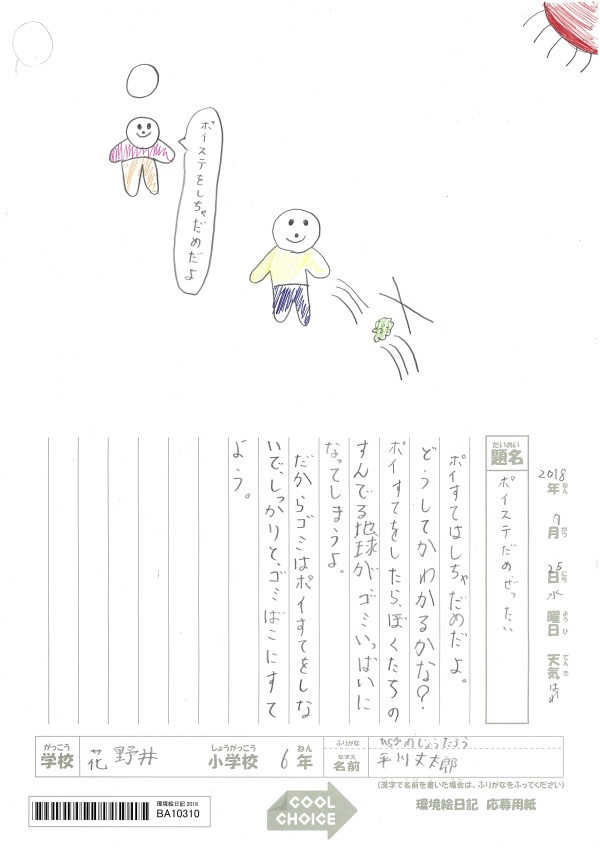 ポイステをしちゃだめだよ
2018年 月 25日 水曜日 天気 はれ
ねん がつ にち ようび てんき
だいめい
題名
ポイステだめぜったい
ポイすてはしちゃだめだよ。
どうしてかわかるかな?
ポイすてをしたら、ぼくたちの
すんでる地球がゴミいっぱいに
なってしまうよ。
だからゴミはポイすてをしな
いで、しっかりと、ゴミばこにすて
よう。
がっこう しょうがっこう ねん
学校 花野井 小学校 6年
ふりがな ひらかわじょうたろう
なまえ
名前 平川丈太郎
(漢字で名前を書いた場合は、ふりがなをふってください)
環境絵日記2018
BA10310
COOL
CHOICE
環境絵日記 応募用紙